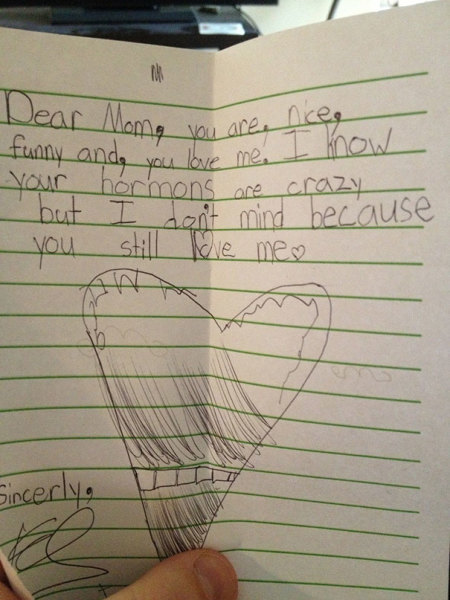 Dear Mom, you are, nice,
funny and, you love me. I know
your hormons are crazy
but I don't mind because
you still love me
Sincerly,